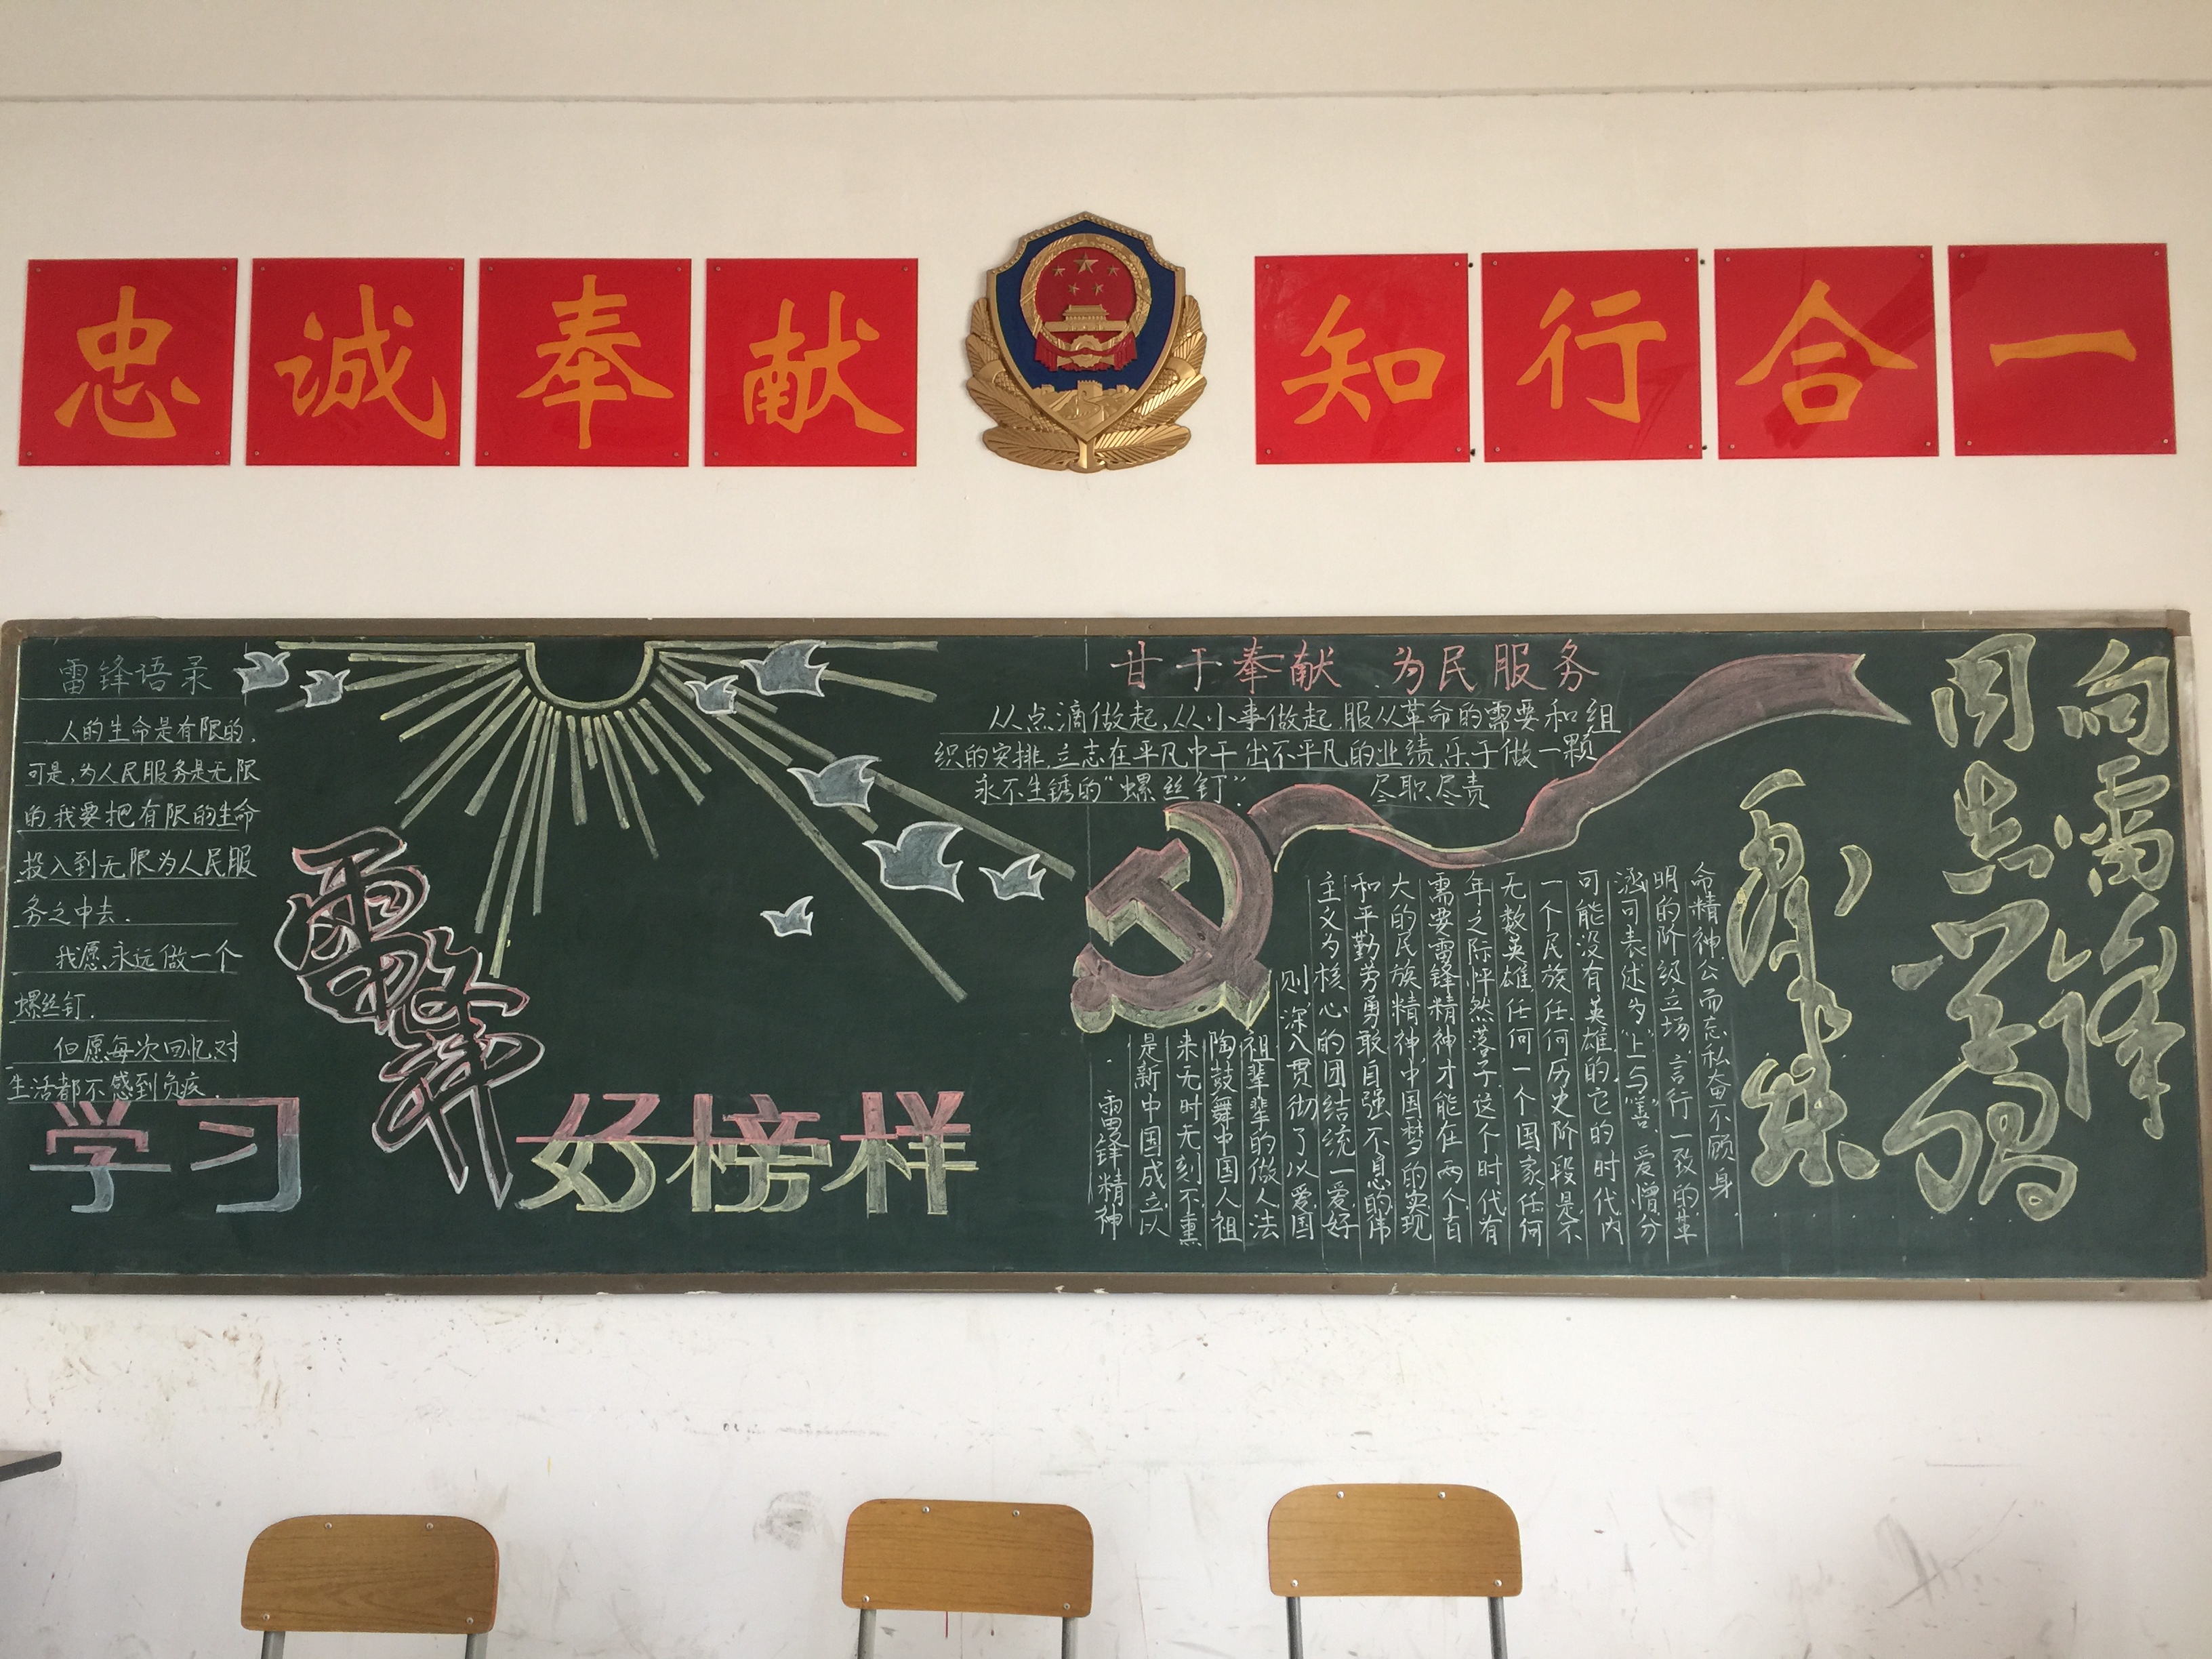 忠诚奉献
知行合一
雷锋语录
人的生命是有限的,
可是,为人民服务是无限
的,我要把有限的生命
投入到无限为人民服
务之中去.
我愿永远做一个
螺丝钉.
但愿每次回忆,对
生活都不感到负疚.
学习
雷锋
好榜样
甘于奉献 为民服务
从点滴做起,从小事做起,服从革命的需要和组
织的安排,立志在平凡中干出不平凡的业绩,乐于做一颗
永不生锈的“螺丝钉”. 尽职尽责
向雷锋
同志学习
毛泽东
命精神.公而忘私奋不顾身.
明的阶级立场.言行一致的革
涵可表述为“上与善”.爱憎分
可能没有英雄的,它的时代内
一个民族任何历史阶段是不
无数英雄任何一个国家任何
年之际怦然落子.这个时代有
需要雷锋精神才能在两个百
大的民族精神.中国梦的实现
和平勤劳勇敢自强不息的伟
主义为核心的团结统一爱好
则.深入贯彻了以爱国
祖辈辈的做人法
陶鼓舞中国人祖
来无时无刻不熏
是新中国成立以
雷锋精神